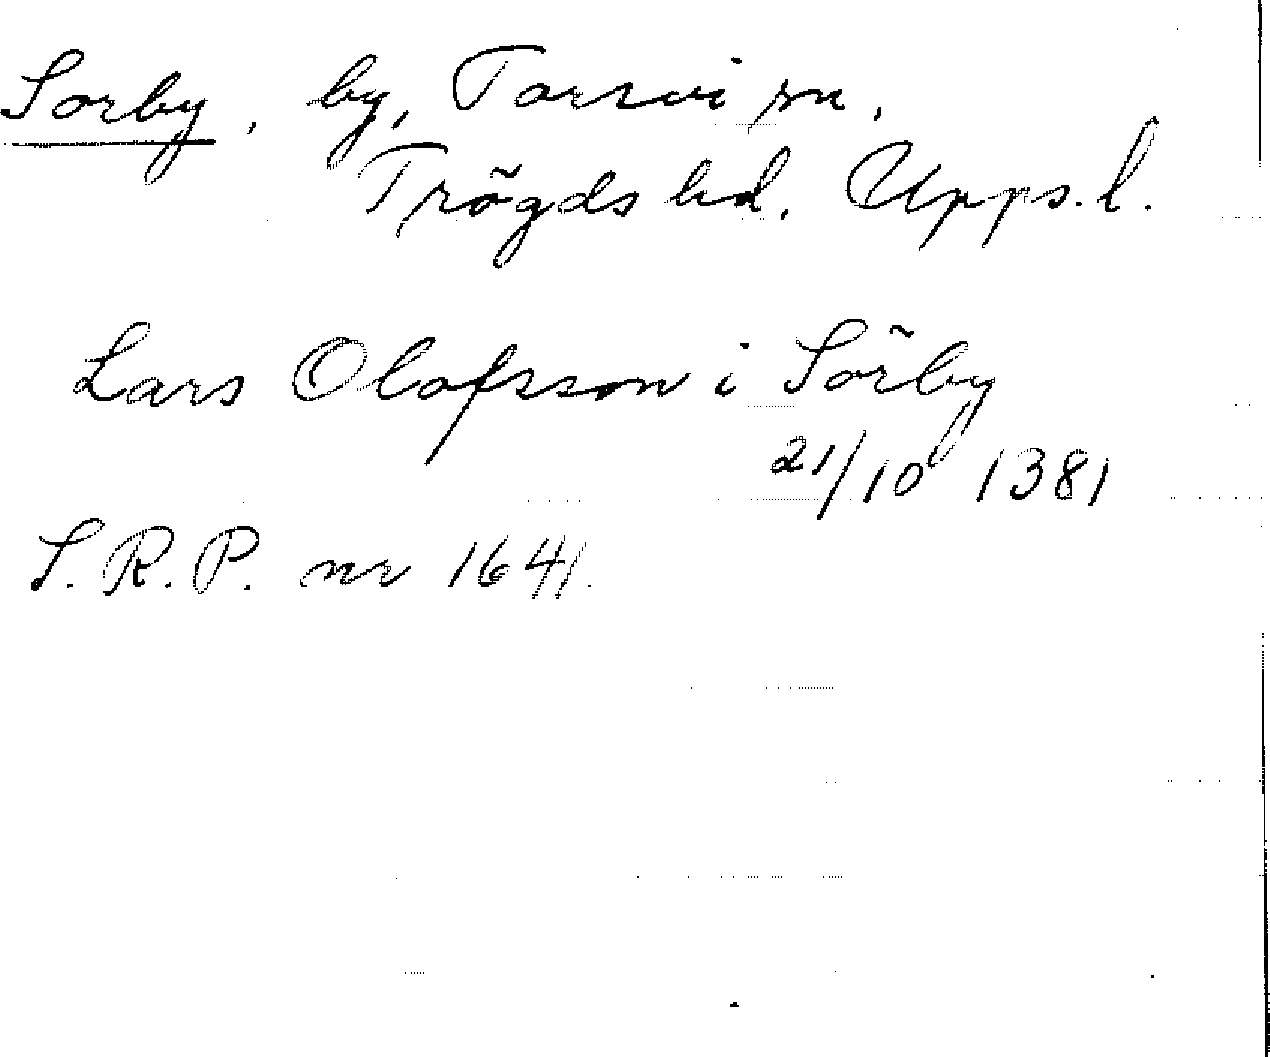 Sorby, by, Torsvi sn,
Trögds hd, Upps. l.
Lars Olofsson i Sörby
21/10 1381
S. R. P. nr 1641.